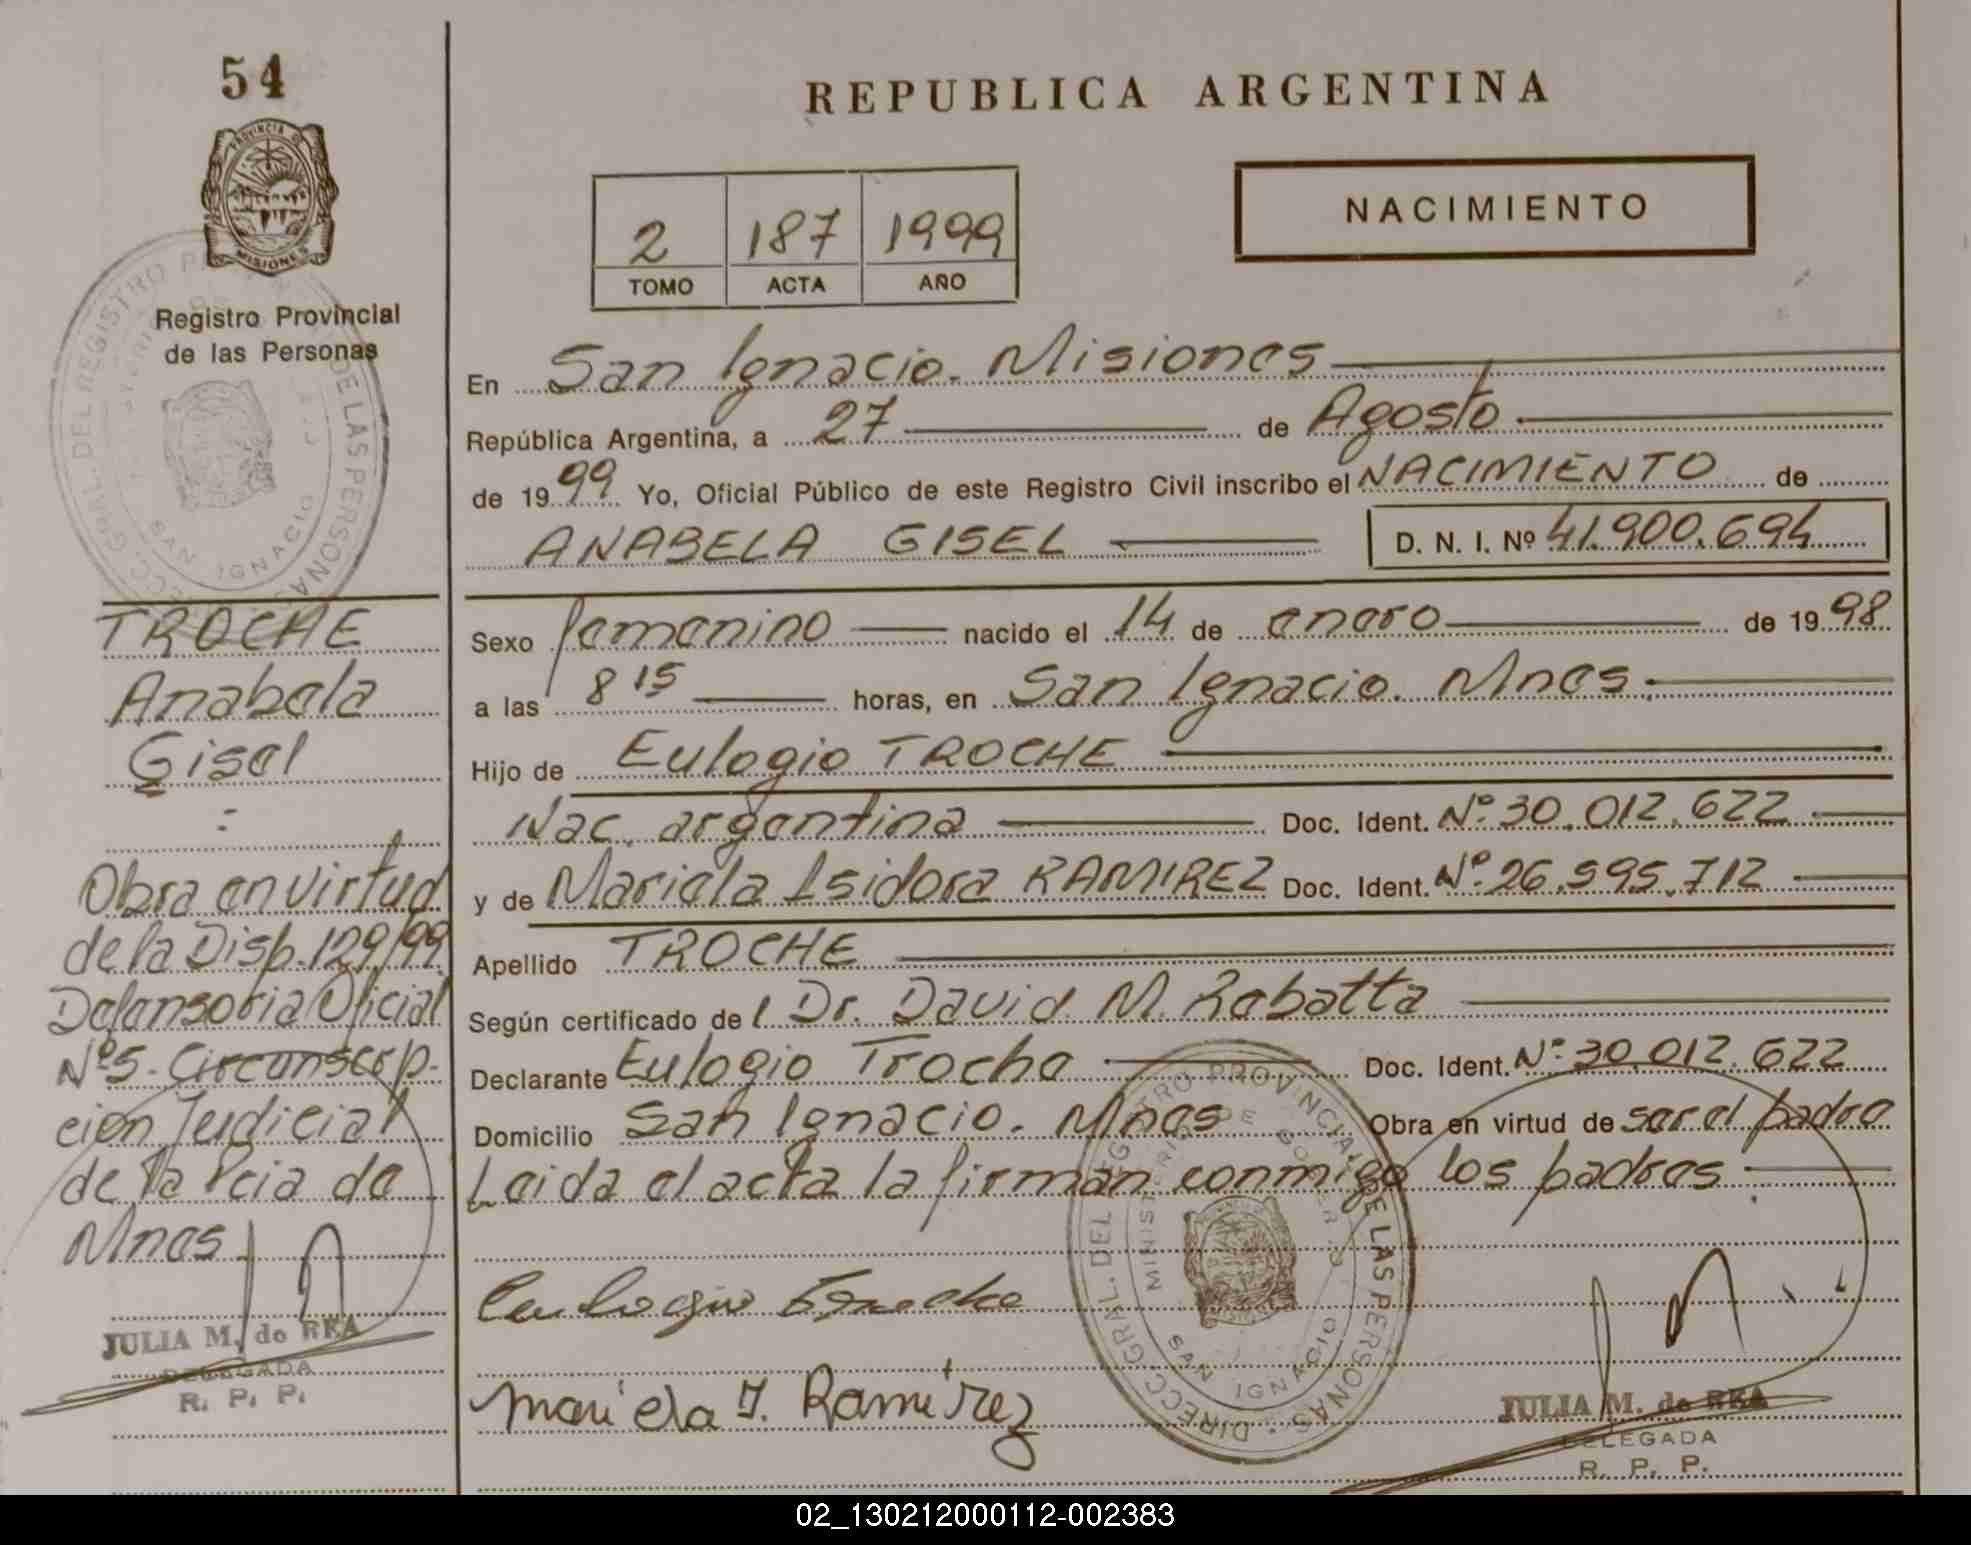 54
PROVINCIA DE
MISIONES
Registro Provincial
de las Personas
DIRECC. GRAL. DEL REGISTRO PROVINCIAL DE LAS PERSONAS
SAN IGNACIO
TROCHE
Anabela
Gisel
Obra en virtud
de la Disp. 129/99
Defensoria Oficial
Nº 5. Circunscrip-
ción Judicial
de la Pcia de
Mnes
JULIA M. de REA
DELEGADA
R. P. P.
REPUBLICA ARGENTINA
2 187 1999
TOMO ACTA AÑO
NACIMIENTO
En San Ignacio. Misiones
República Argentina, a 27 de Agosto
de 1999 Yo, Oficial Público de este Registro Civil inscribo el NACIMIENTO de
ANABELA GISEL D. N. I. Nº 41.900.694
Sexo femenino nacido el 14 de enero de 1998
a las 8 15 horas, en San Ignacio. Mnes.
Hijo de Eulogio TROCHE
Nac. argentina Doc. Ident. Nº 30.012.622
y de Mariela Isidora RAMIREZ Doc. Ident. Nº 26.595.712
Apellido TROCHE
Según certificado de l Dr. David M. Rabatta
Declarante Eulogio Troche Doc. Ident. Nº 30.012.622
Domicilio San Ignacio. Mnes Obra en virtud de ser el padre
Leida el acta la firman conmigo los padres
DIRECC. GRAL. DEL REGISTRO PROVINCIAL DE LAS PERSONAS
MINISTERIO DE GOBIERNO
SAN IGNACIO
Eulogio Troche
Mariela I. Ramirez
JULIA M. de REA
DELEGADA
R. P. P.
02_130212000112-002383